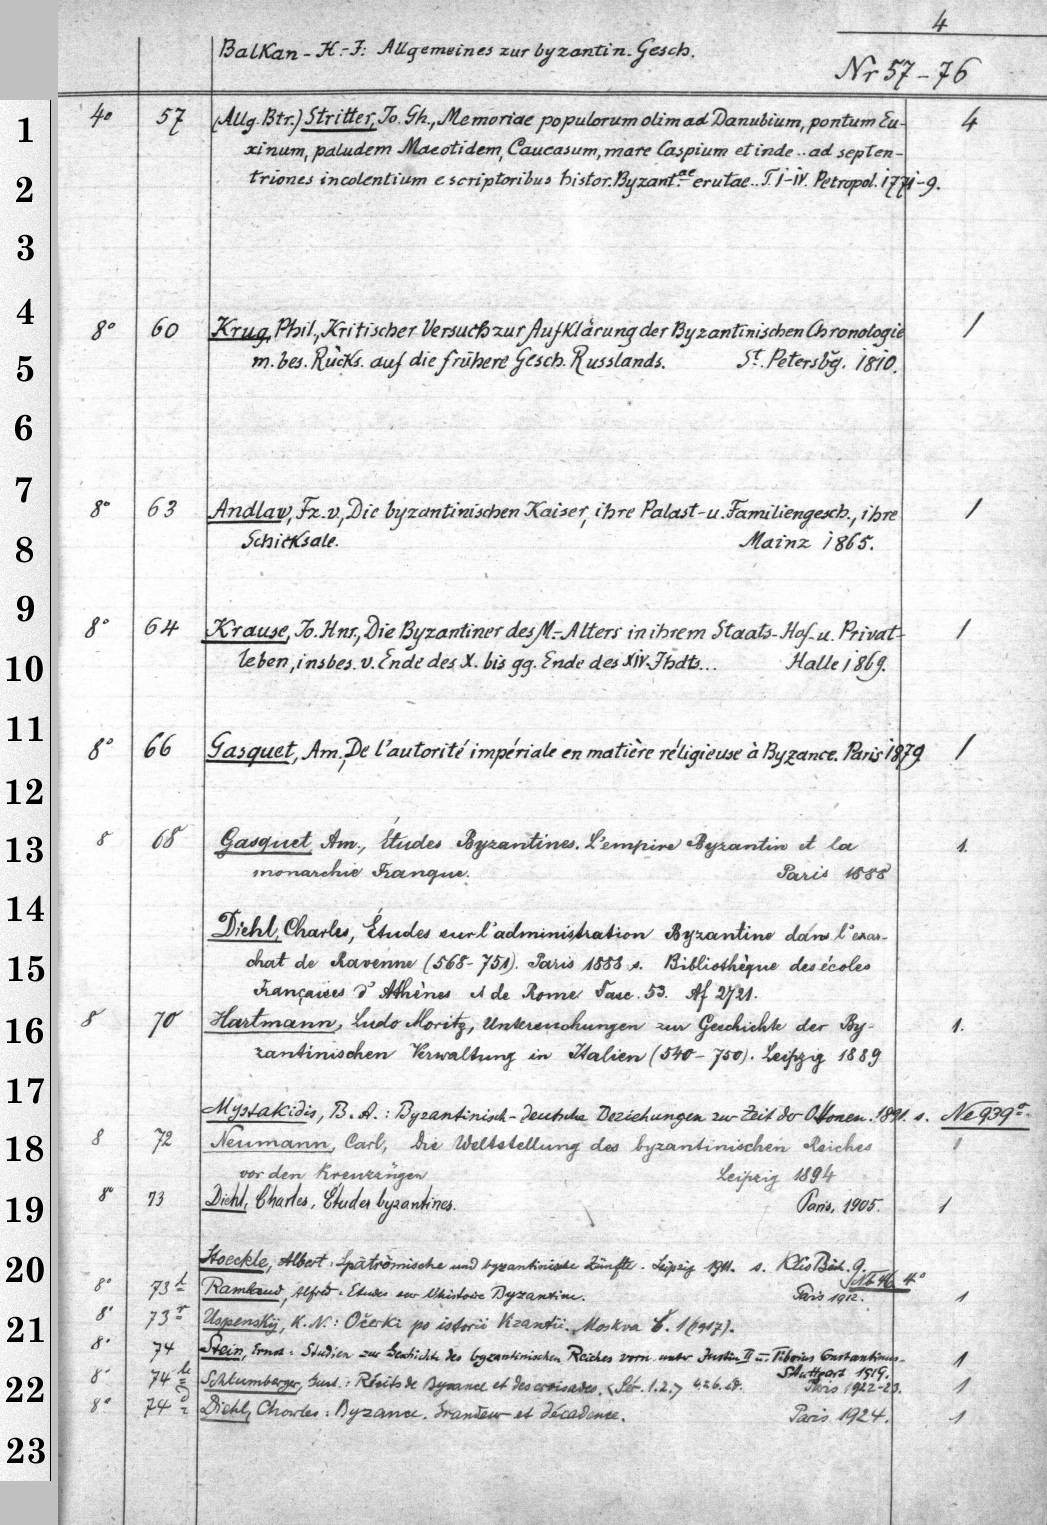 4
Balkan - H.-F: Allgemeines zur byzantin. Gesch.
Nr 57-76
1
4° 57 (Allg. Btr.) Stritter, Jo. Gh., Memoriae populorum olim ad Danubium, pontum Eu- 4
xinum, paludem Maeotidem, Caucasum, mare Caspium et inde .. ad septen-
2
triones incolentium e scriptoribus histor. Byzant.ae erutae.. T. i-iv. Petropol. 1771-9.
3
4
8° 60 Krug, Phil., Kritischer Versuch zur Aufklärung der Byzantinischen Chronologie 1
5
m. bes. Rücks. auf die frühere Gesch. Russlands. St. Petersbg. 1810.
6
7
8° 63 Andlaw, Fz. v., Die byzantinischen Kaiser, ihre Palast- u. Familiengesch., ihre 1
8
Schicksale. Mainz 1865.
9
8° 64 Krause, Jo. Hnr., Die Byzantiner des M.-Alters in ihrem Staats- Hof- u. Privat- 1
10
leben, insbes. v. Ende des X. bis gg. Ende des XIV. Jhdts... Halle 1869.
11
8° 66 Gasquet, Am., De l'autorité impériale en matière réligieuse à Byzance. Paris 1879 1
12
13
8 68 Gasquet Am., Études Byzantines. L'empire Byzantin et la 1.
monarchie Franque. Paris 1888
14
Diehl, Charles, Études sur l'administration Byzantine dans l'exar-
15
chat de Ravenne (568-751). Paris 1888 s. Bibliothèque des écoles
Françaises d'Athènes et de Rome Fasc. 53. Af 2/21.
16
8 70 Hartmann, Ludo Moritz, Untersuchungen zur Geschichte der By- 1.
zantinischen Verwaltung in Italien (540-750). Leipzig 1889
17
Mystakidis, B. A.: Byzantinisch-deutsche Beziehungen zur Zeit der Ottonen. 1891. s. Ne 939
18
8 72 Neumann, Carl, Die Weltstellung des byzantinischen Reiches 1
vor den Kreuzzügen Leipzig 1894
19
8° 73 Diehl, Charles, Études byzantines. Paris, 1905. 1
20
Stoeckle, Albert: Spätrömische und byzantinische Zünfte. Leipzig 1911. s. Klio Beih. 9.
4°
8° 73 Rambaud, Alfred: Études sur l'histoire Byzantine. Paris 1912. 1
21
8° 73 Uspenskij, K. N.: Očerki po istorii Vizantii. Moskva Č. 1 (1917).
8° 74 Stein, Ernst: Studien zur Geschichte des byzantinischen Reiches vorn. unter Justin II u. Tiberius Constantinus. 1
Stuttgart 1919.
22
8° 74 Schlumberger, Gust.: Récits de Byzance et des croisades. (Sér. 1.2.) Paris 1922-23. 1
8° 74 Diehl, Charles: Byzance. Grandeur et décadence. Paris 1924. 1
23